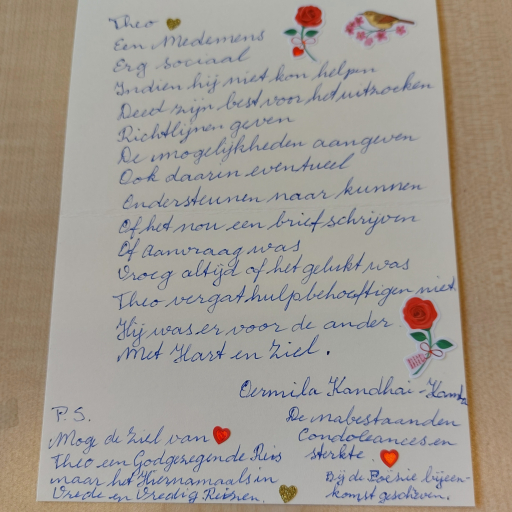 Theo
Een Medemens
Erg sociaal
Indien hij niet kon helpen
Deed zijn best voor het uitzoeken
Richtlijnen geven
De mogelijkheden aangeven
Ook daarin eventueel
Ondersteunen naar kunnen
Of het nou een brief schrijven
Of aanvraag was
Vroeg altijd of het gelukt was
Theo vergat hulpbehoeftigen niet
Hij was er voor de ander
Met Hart en Ziel.
Oermila Kandhai-
P.S.
Moge de Ziel van
Theo een Godgezegende Reis
maar het Hiernamaals in
Vrede en Vredig Reizen.
De nabestaanden
Condoleances en
sterkte.
Bij de Poësie bijeen-
komst geschreven.